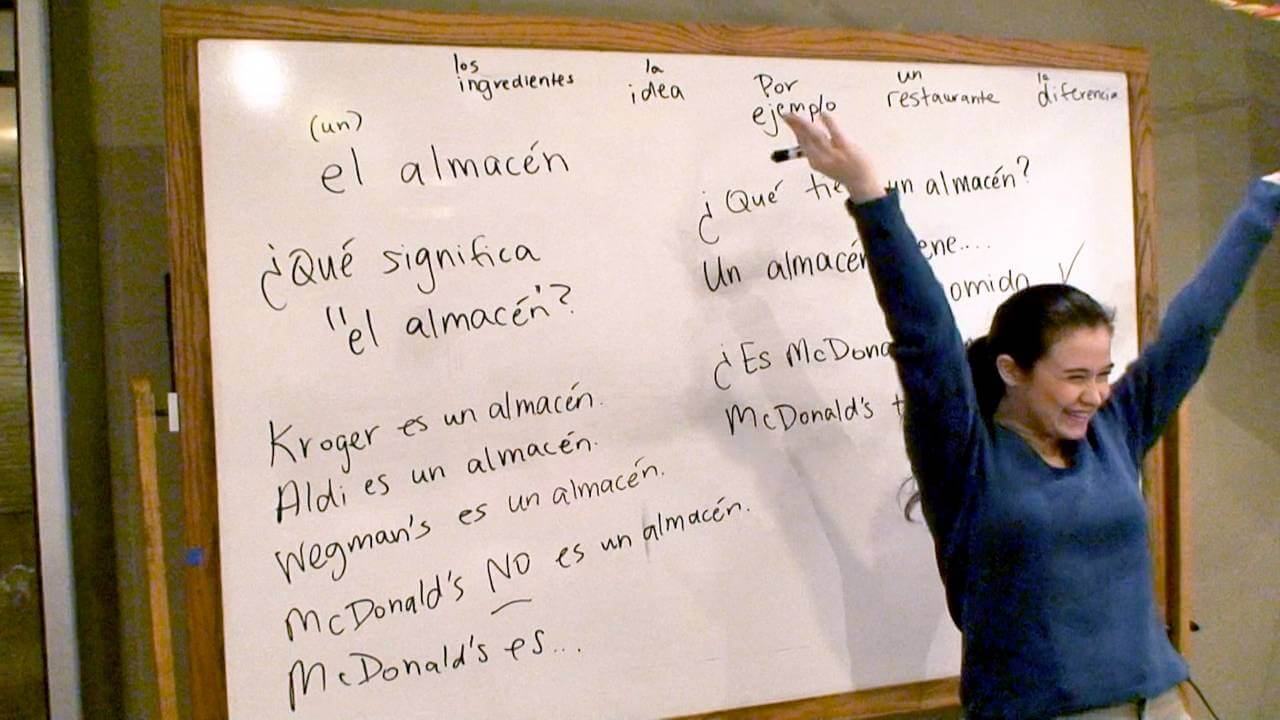 los
ingredientes
la
idea
Por
ejemplo
un
restaurante
la
diferencia
(un)
el almacén
¿Qué significa
"el almacén"?
Kroger es un almacén.
Aldi es un almacén.
Wegman's es un almacén.
McDonald's NO es un almacén.
McDonald's es...
¿Qué un almacén?
Un almacén
¿Es
McDonald's